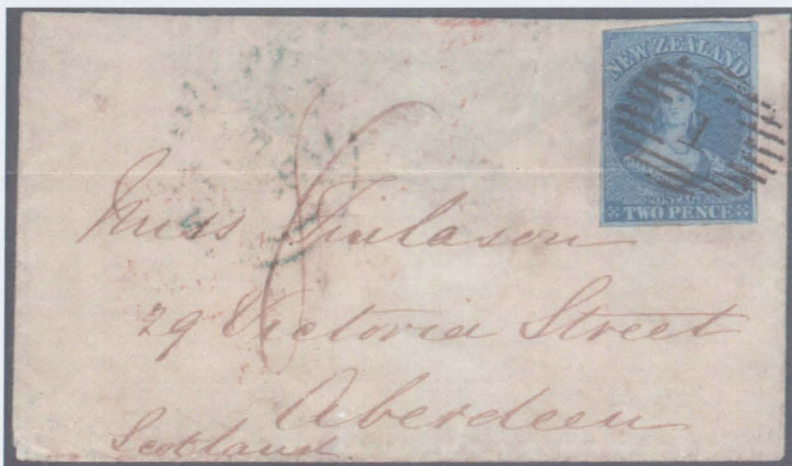 NEW ZEALAND
1
POSTAGE
TWO PENCE
Miss Finlason
29 Victoria Street
Aberdeen
Scotland